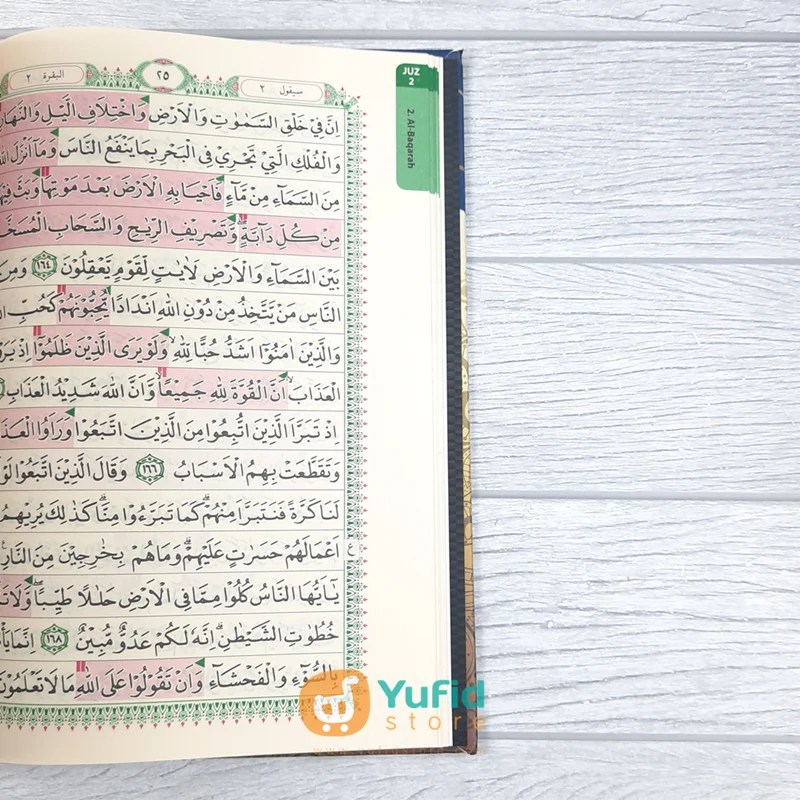 البقرة ٢
٢٥
سيقول ٢
JUZ
2
2. Al-Baqarah
اِنَّ فِيْ خَلْقِ السَّمٰوٰتِ وَالْاَرْضِ وَاخْتِلَافِ الَّيْلِ وَالنَّهَارِ
وَالْفُلْكِ الَّتِيْ تَجْرِيْ فِى الْبَحْرِ بِمَا يَنْفَعُ النَّاسَ وَمَآ اَنْزَلَ
مِنَ السَّمَاۤءِ مِنْ مَّاۤءٍ فَاَحْيَا بِهِ الْاَرْضَ بَعْدَ مَوْتِهَا وَبَثَّ فِيْهَا
مِنْ كُلِّ دَاۤبَّةٍ ۖ وَّتَصْرِيْفِ الرِّيٰحِ وَالسَّحَابِ
بَيْنَ السَّمَاۤءِ وَالْاَرْضِ لَاٰيٰتٍ لِّقَوْمٍ يَّعْقِلُوْنَ ١٦٤ وَمِنَ
النَّاسِ مَنْ يَّتَّخِذُ مِنْ دُوْنِ اللّٰهِ اَنْدَادًا يُّحِبُّوْنَهُمْ كَحُبِّ
وَالَّذِيْنَ اٰمَنُوْٓا اَشَدُّ حُبًّا لِّلّٰهِ ۙ وَلَوْ يَرَى الَّذِيْنَ ظَلَمُوْٓا اِذْ
الْعَذَابَۙ اَنَّ الْقُوَّةَ لِلّٰهِ جَمِيْعًا ۙوَّاَنَّ اللّٰهَ شَدِيْدُ الْعَذَابِ
اِذْ تَبَرَّاَ الَّذِيْنَ اتُّبِعُوْا مِنَ الَّذِيْنَ اتَّبَعُوْا وَرَاَوُا
وَتَقَطَّعَتْ بِهِمُ الْاَسْبَابُ ١٦٦ وَقَالَ الَّذِيْنَ اتَّبَعُوْا لَوْ
لَنَا كَرَّةً فَنَتَبَرَّاَ مِنْهُمْ ۗ كَمَا تَبَرَّءُوْا مِنَّا ۗ كَذٰلِكَ يُرِيْهِمُ
اَعْمَالَهُمْ حَسَرٰتٍ عَلَيْهِمْ ۗ وَمَا هُمْ بِخٰرِجِيْنَ مِنَ النَّارِ
ع
يٰٓاَيُّهَا النَّاسُ كُلُوْا مِمَّا فِى الْاَرْضِ حَلٰلًا طَيِّبًا ۖ
خُطُوٰتِ الشَّيْطٰنِۗ اِنَّهٗ لَكُمْ عَدُوٌّ مُّبِيْنٌ ١٦٨ اِنَّمَا
بِالسُّوْۤءِ وَالْفَحْشَاۤءِ وَاَنْ تَقُوْلُوْا عَلَى اللّٰهِ مَا لَا تَعْلَمُوْنَ
Yufid
store